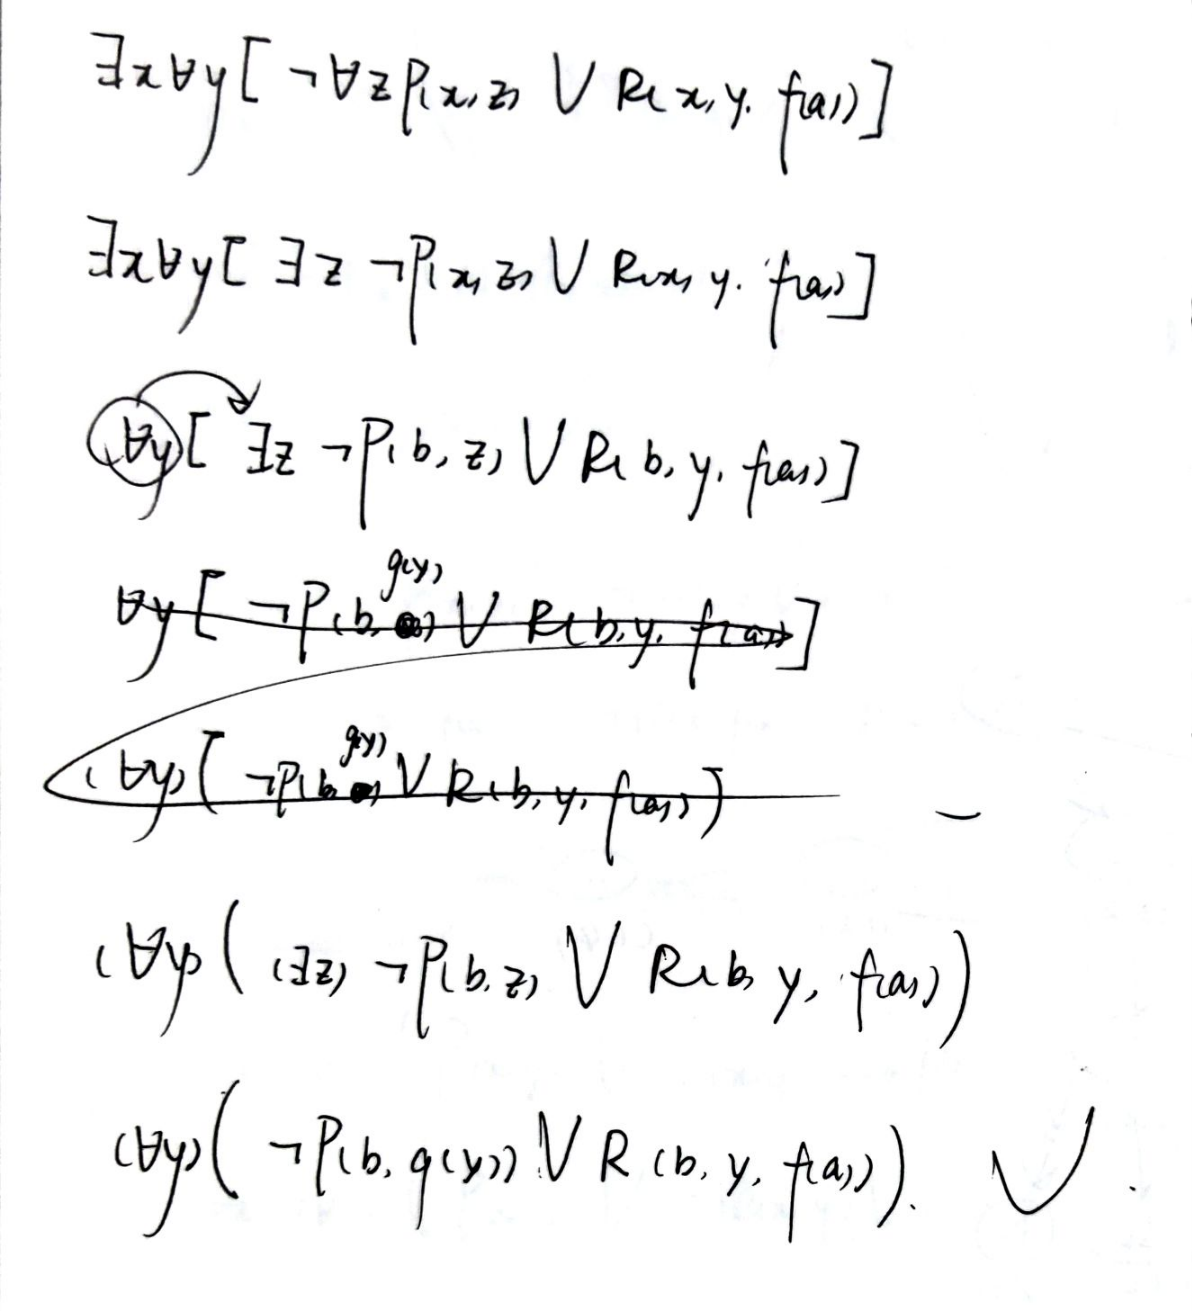 ∃x∀y[¬∀zP(x,z) ∨ R(x,y,f(a))]
∃x∀y[∃z ¬P(x,z) ∨ R(x,y,f(a))]
∀y[∃z ¬P(b,z) ∨ R(b,y,f(a))]
g(y)
∀y[¬P(b, ) ∨ R(b,y,f(a))]
g(y)
(∀y)[¬P(b, ) ∨ R(b,y,f(a))]
(∀y)((∃z) ¬P(b,z) ∨ R(b,y,f(a)))
(∀y)(¬P(b,g(y)) ∨ R(b,y,f(a))).